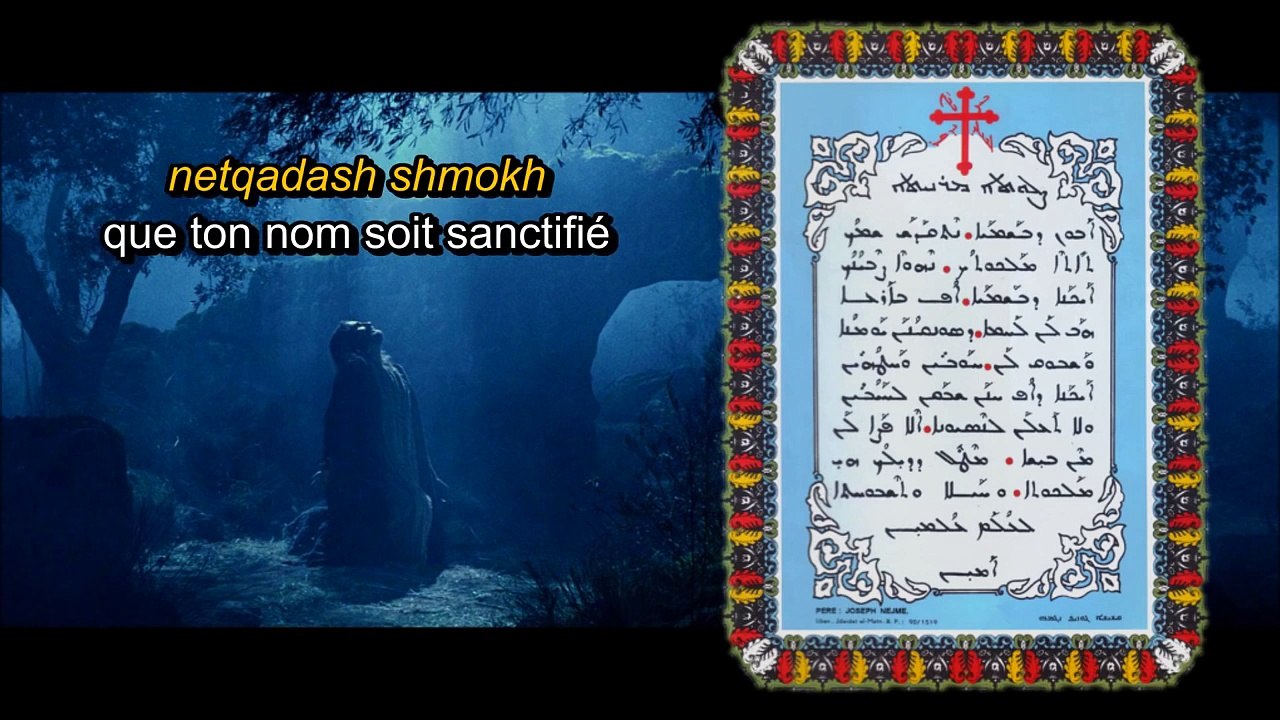 netqadash shmokh
que ton nom soit sanctifié
ܨܠܘܬܐ ܡܪܢܝܬܐ
ܐܒܘܢ ܕܒܫܡܝܐ. ܢܬܩܕܫ ܫܡܟ
ܬܐܬܐ ܡܠܟܘܬܟ. ܢܗܘܐ ܨܒܝܢܟ
ܐܝܟܢܐ ܕܒܫܡܝܐ. ܐܦ ܒܐܪܥܐ
ܗܒ ܠܢ ܠܚܡܐ. ܕܣܘܢܩܢܢ ܝܘܡܢܐ
ܘܫܒܘܩ ܠܢ. ܚܘܒܝܢ ܘܚܛܗܝܢ
ܐܝܟܢܐ ܕܐܦ ܚܢܢ ܫܒܩܢ ܠܚܝܒܝܢ
ܘܠܐ ܬܥܠܢ ܠܢܣܝܘܢܐ. ܐܠܐ ܦܨܐ ܠܢ
ܡܢ ܒܝܫܐ. ܡܛܠ ܕܕܝܠܟ ܗܝ
ܡܠܟܘܬܐ. ܘܚܝܠܐ ܘܬܫܒܘܚܬܐ
ܠܥܠܡ ܥܠܡܝܢ
ܐܡܝܢ
PERE : JOSEPH NEJME.
liban. Jdaidet el-Matn. B. P. : 90/1519